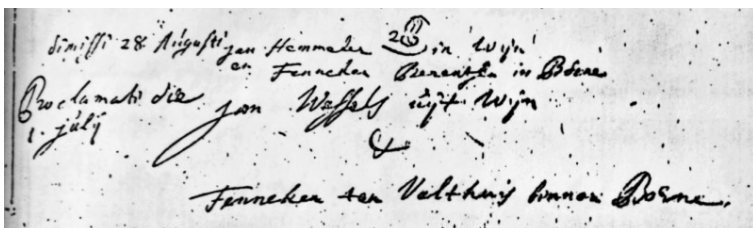 dimissi 28 Augusti Jan Hemmeler in Wijn
en Fenneken Berentsen in Borne
Proclamati die Jan Wessels uijt Wijn
1. julij
&
Fenneken ten Velthuis binnen Borne.